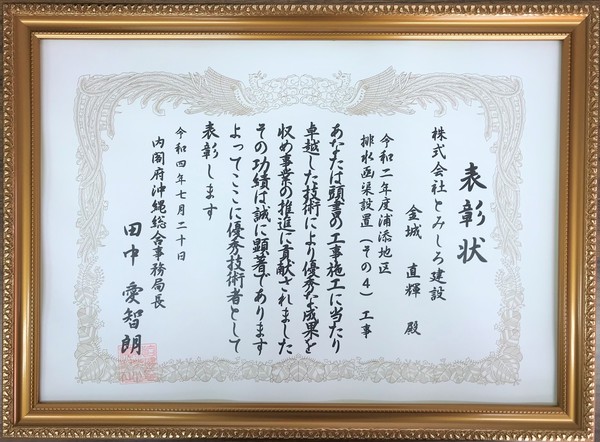 表彰状
株式会社とみしろ建設
金城 直輝 殿
令和二年度浦添地区
排水函渠設置(その4)工事
あなたは頭書の工事施工に当たり
卓越した技術により優秀な成果を
収め事業の推進に貢献されました
その功績は誠に顕著であります
よってここに優秀技術者として
表彰します
令和四年七月二十日
内閣府沖縄総合事務局長
田中愛智朗